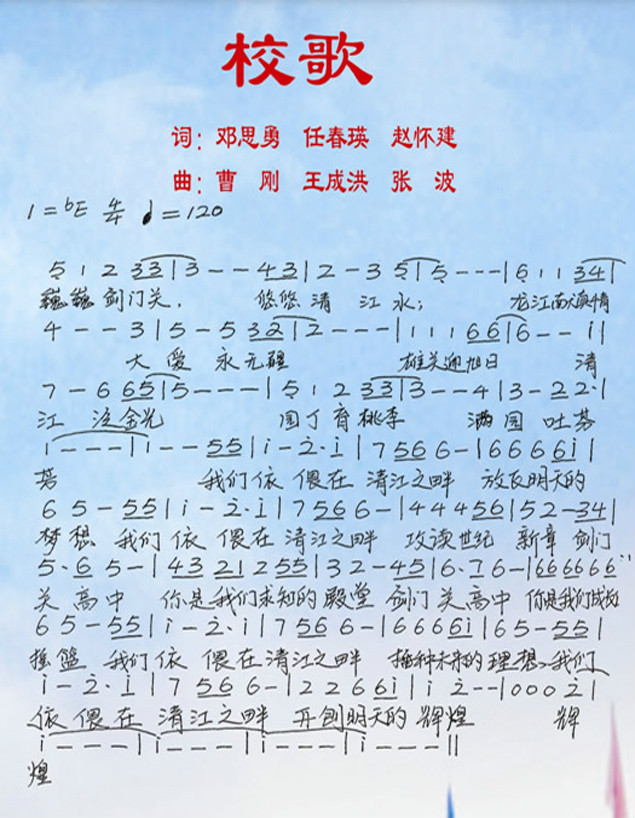 校歌
词：邓思勇 任春瑛 赵怀建
曲：曹 刚 王成洪 张 波
1=bE 4/4 ♩=120
5 1 2 3 3 | 3 - - 4 3 | 2 - 3 5 | 5 - - - | 6 1 1 3 4 |
巍巍剑门关， 悠悠清 江水； 龙江南大 情
4 - - - 3 | 5 - 5 3 2 | 2 - - - | 1 1 1 6 6 | 6 - - i |
大 爱 永无疆 雄关迎旭日 清
7 - 6 6 5 | 5 - - - | 5 1 2 3 3 | 3 - - 4 | 3 - 2 2 · |
江 泛金光 园丁育桃李 满 园 吐芬
i - - - | i - - 5 5 | i - 2 · i | 7 5 6 6 - | 6 6 6 6 i |
芳 我们依 偎在 清江之畔 放飞明天的
6 5 - 5 5 | i - 2 · i | 7 5 6 6 - | 4 4 4 5 6 | 5 2 - 3 4 |
梦想 我们依 偎在清江之畔 攻读世纪 新章 剑门
5 · 6 5 - | 4 3 2 1 2 5 5 | 3 2 - 4 5 | 6 · 7 6 - | 6 6 6 6 6 6
关 高中 你是我们求知的殿堂 剑门关高中 你是我们成长
6 5 - 5 5 | i - 2 · i | 7 5 6 6 - | 6 6 6 6 i | 6 5 - 5 5 |
摇篮 我们依 偎在清江之畔 播种未来的理想、我们
i - 2 · i | 7 5 6 6 - | 2 2 6 6 i | i 2 - - | 0 0 0 2 |
依 偎在 清江之畔 开创明天的 辉煌 辉
i - - - | i - - - | i - - - | i - - - ||
煌